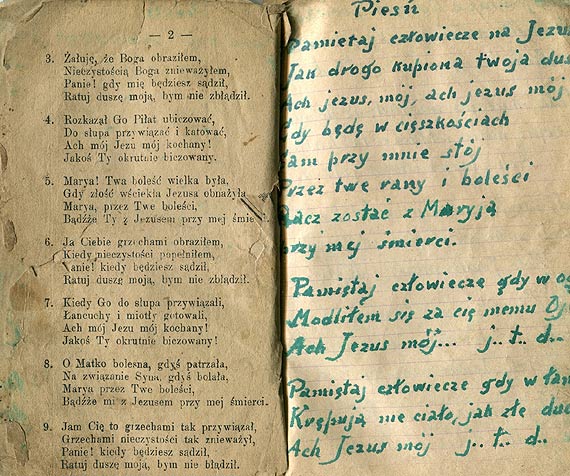 — 2 —
3. Żałuję, że Boga obraziłem,
Nieczystością Boga znieważyłem,
Panie! gdy mię będziesz sądził,
Ratuj duszę moją, bym nie zbłądził.
4. Rozkazał Go Piłat ubiczować,
Do słupa przywiązać i katować,
Ach mój Jezu mój kochany!
Jakoś Ty okrutnie biczowany.
5. Marya! Twa boleść wielka była,
Gdy złość wściekła Jezusa obnażyła
Marya, przez Twe boleści,
Bądźże Ty z Jezusem przy mej śmie
6. Ja Ciebie grzechami obraziłem,
Kiedy nieczystości popełniłem,
Panie! kiedy będziesz sądził,
Ratuj duszę moją, bym nie zbłądził.
7. Kiedy Go do słupa przywiązali,
Łańcuchy i miotły gotowali,
Ach mój Jezu mój kochany!
Jakoś Ty okrutnie biczowany!
8. O Matko bolesna, gdyś patrzała,
Na związanie Syna, gdyś bolała,
Marya przez Twe boleści,
Bądźże mi z Jezusem przy mej śmierci.
9. Jam Cię to grzechami tak przywiązał,
Grzechami nieczystości tak znieważył,
Panie! kiedy będziesz sądził,
Ratuj duszę moją, bym nie błądził.
Pieśń
Pamiętaj człowiecze na Jezu
Jak drogo kupiona twoja dus
Ach jezus, mój, ach jezus mój
gdy będę w cięszkościach
tam przy mnie stój
Przez twe rany i boleści
Racz zostać z Maryją
przy mej śmierci.
Pamiętaj człowiecze gdy w og
Modliłem się za cię memu Oj
Ach Jezus mój... j.. t.. d..
Pamiętaj człowiecze gdy w łań
Krępują me ciało, jak złe duc
Ach Jezus mój j.. t.. d..